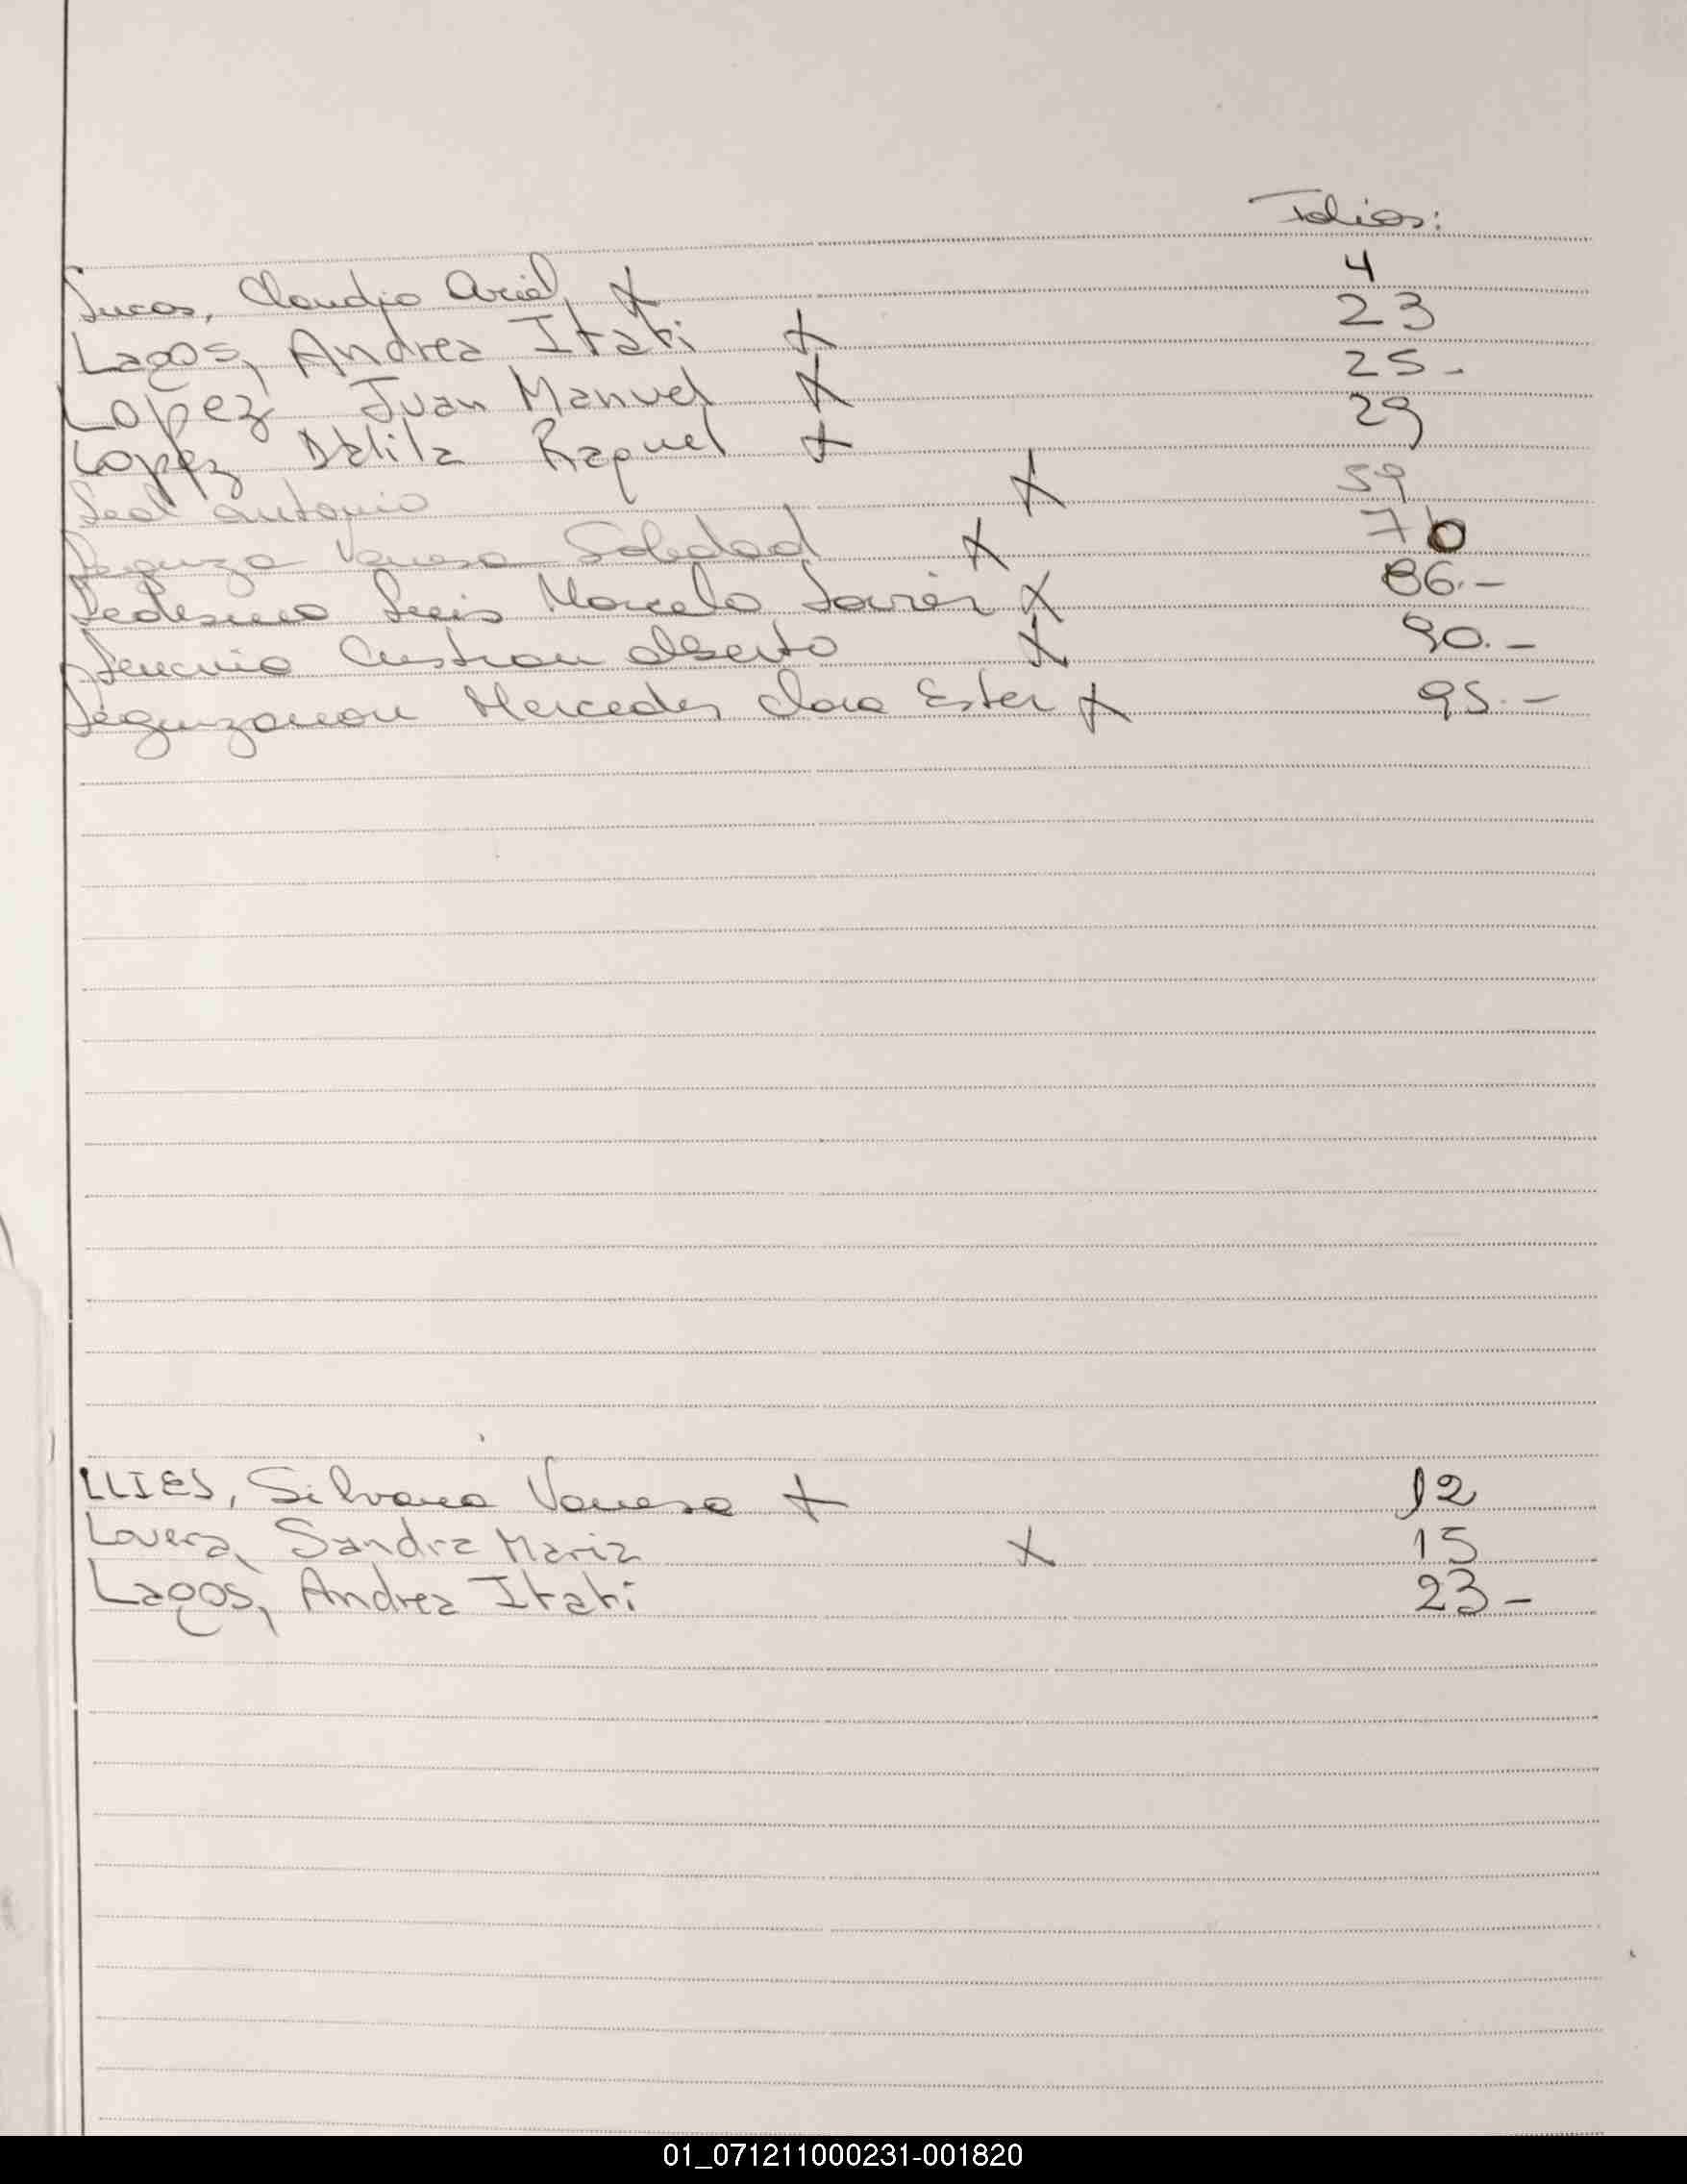 Folios:
Lucas, Claudio Ariel, X 4
Lagos, Andrea Itati X 23
Lopez Juan Manuel X 25 -
Lopez Dalila Raquel X 29
Leal Antonio X 59
Leguiza Vanesa Soledad X 70
Ledesma Luis Marcelo Javier X 86.-
Cristian Alberto X 90.-
Leguizamon Mercedes Clara Ester X 95.-
LLIES, Silvana Vanesa X 12
Lovera, Sandra Maria X 15
Lagos, Andrea Itati 23 -
01_071211000231-001820